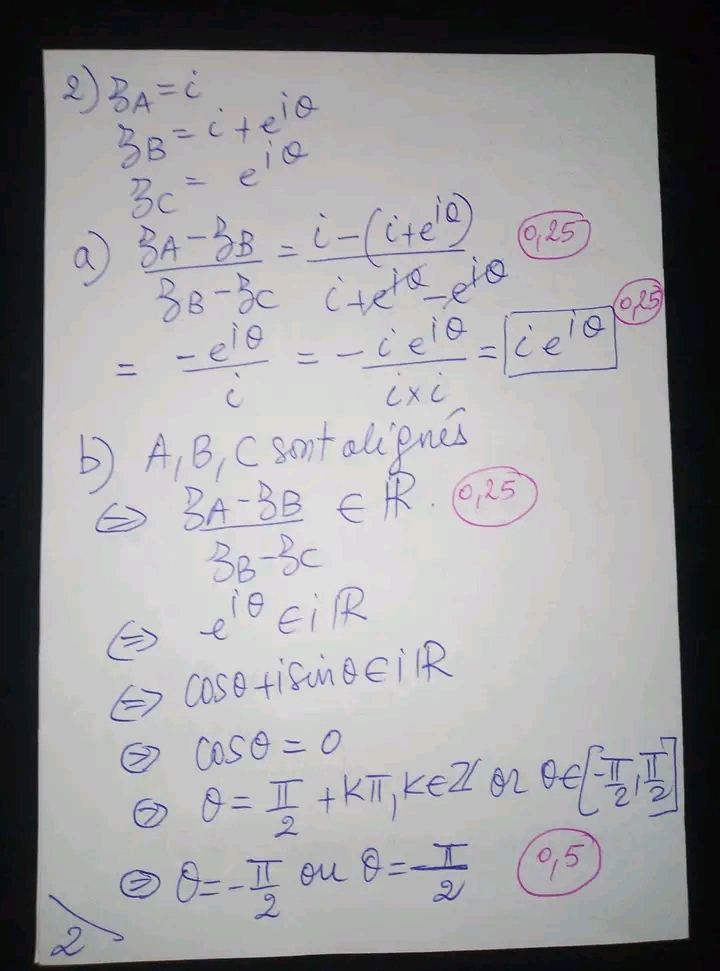 2) zA = i
zB = i + e^{iθ}
zC = e^{iθ}
a) (zA - zB)/(zB - zC) = (i - (i + e^{iθ}))/(i + e^{iθ} - e^{iθ}) 0,25
= -e^{iθ}/i = - i e^{iθ}/(i × i) = i e^{iθ} 0,25
b) A, B, C sont alignés
⇔ (zA - zB)/(zB - zC) ∈ ℝ. 0,25
⇔ e^{iθ} ∈ iℝ
⇔ cosθ + i sinθ ∈ iℝ
⇔ cosθ = 0
⇔ θ = π/2 + kπ, k ∈ ℤ or θ ∈ [-π/2, π/2]
⇔ θ = -π/2 ou θ = -π/2 0,5
2